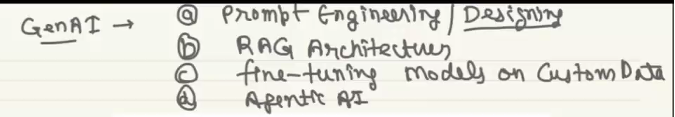 GenAI → ⓐ Prompt Engineering / Designing
ⓑ RAG Architectues
ⓒ fine-tuning models on Custom Data
ⓓ Agentic AI